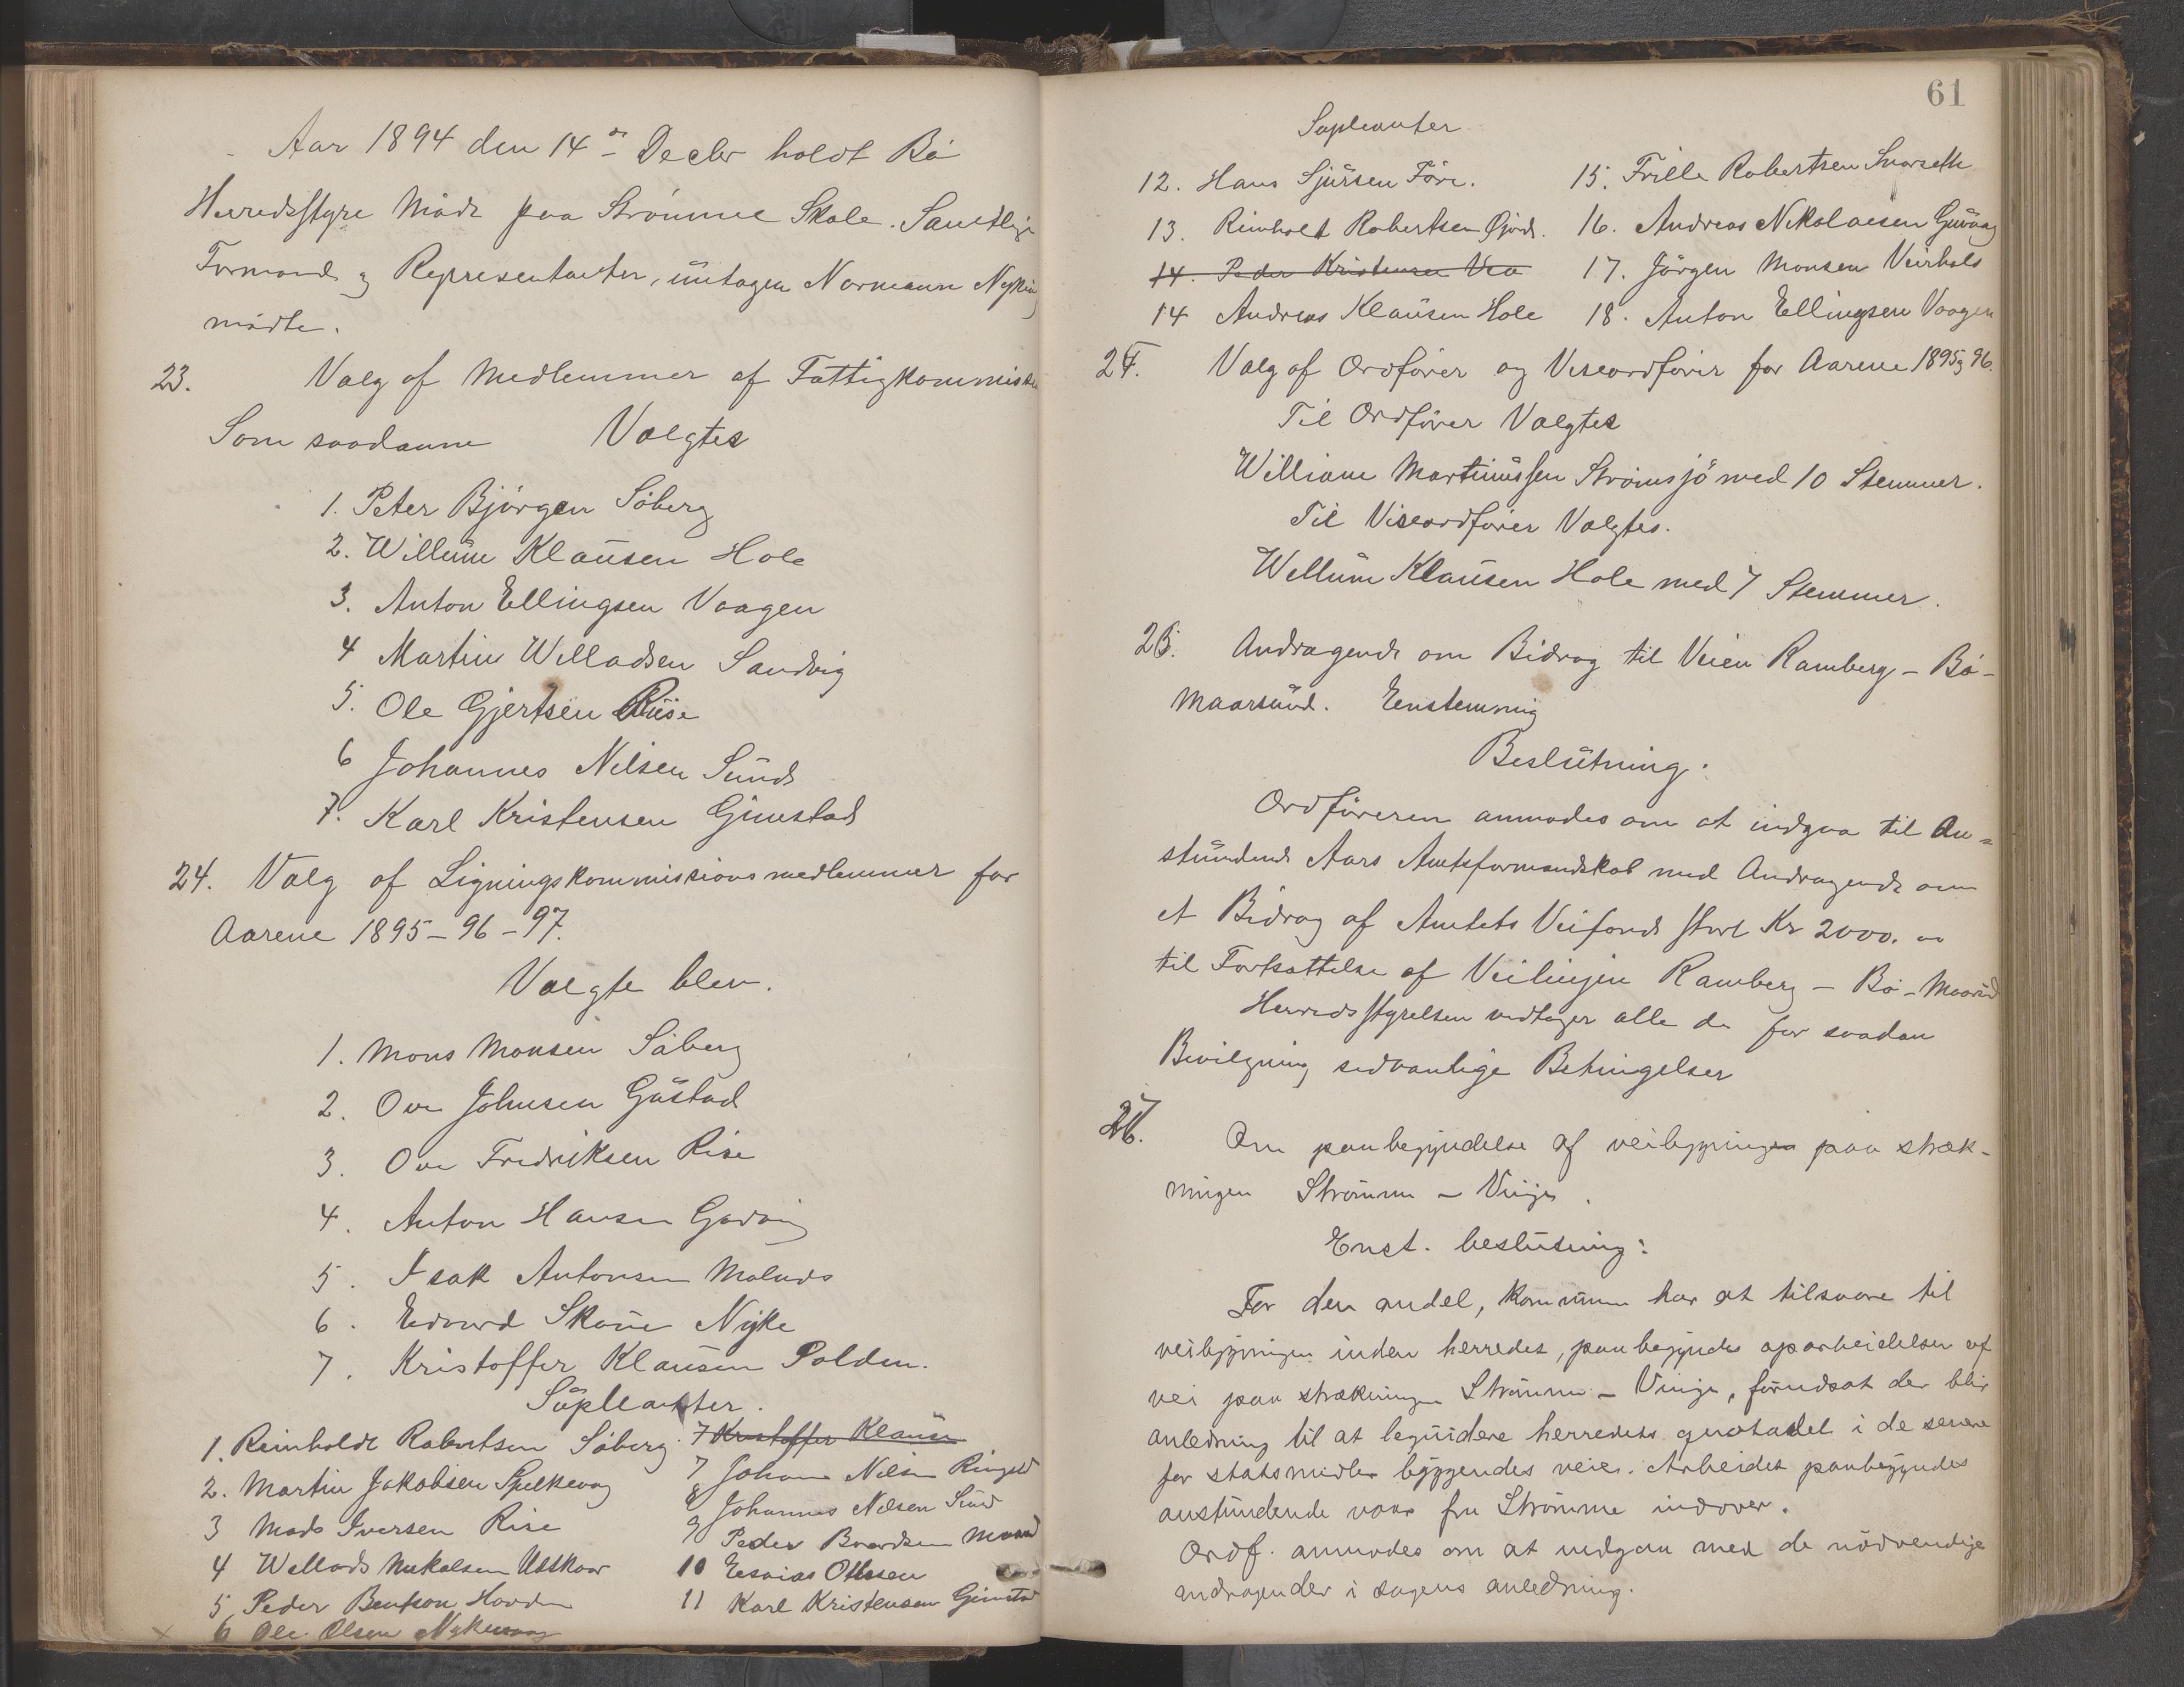 Aar 1894 den 14de Decbr holdt Bö
Herredsstyre Möde paa Strömme Skole. Samtlige
Formænd og Representanter, untagen Normann Nyking
mödte.
23. Valg af Medlemmer af Fattigkommisi
Som saadanne Valgtes
1. Peter Björgen Söberg
2. Willum Klausen Hole
3. Anton Ellingsen Vaagen
4 Martin Willadsen Sandvig
5. Ole Gjertsen Riise
6 Johannes Nilsen Sund
7. Karl Kristensen Gimstad
24. Valg af Ligningskommissionsmedlemmer for
Aarene 1895-96-97.
Valgte blev.
1. Mons Monsen Söberg
2. Ove Johnsen Gustad
3. Ove Fredriksen Rise
4. Anton Hansen
5. Isak Antonsen Malnes
6. Edvard Nyke
7. Kristoffer Klausen Polden.
Supleanter.
1. Reinholdt Robertsen Söberg.
2. Martin Jakobsen Spelkevaag
3 Mads Iversen Rise
4 Wellads Mikalsen Utskaar
5 Peder Bentson Hovden
6 Ole Olsen Nykevaag
7 Kristoffer Klausen
7 Johan Nilsen
8 Johannes Nilsen Sund
9 Peder Baardsen
10 Esaias Ottesen
11 Karl Kristensen Gimstad
61
Supleanter
12. Hans Sjursen Före.
13. Reinholdt Robertsen
14. Peder Kristensen Vea
14 Andreas Klausen Hole
15. Frille Robertsen
16. Andreas Nikolaisen Guvaag
17. Jörgen Monsen
18. Anton Ellingsen Vaagen
25. Valg af Ordförer og Viseordförer for Aarene 1895 og 96.
Til Ordförer Valgtes
William Martinussen Strömsjö med 10 Stemmer.
Til Viseordförer Valgtes.
Wellum Klausen Hole med 7 Stemmer.
26. Andragende om Bidrag til Veien Ramberg – Bö –
Maarsund. Eenstemmig
Beslutning.
Ordföreren anmodes om at indgaa til An=
stundende Aars Amtsformandskab med Andragende om
et Bidrag af Amtets Veifond stort Kr 2000.00
til Fortsættelse af Veilinjen Ramberg – Bö – Maarsund
Herredsstyrelsen vedtager alle de for saadan
Bevilgning sedvanlige Betingelser
27. Om paabegyndelse af veibygningen paa stræk-
ningen Strömme – Vinje.
Enst. beslutning:
For den andel, kommunen har at tilsvare til
veibygningen inden herredet, paabegyndes oparbeidelsen af
vei paa strækningen Strömme – Vinje, forudsat der blir
anledning til at leqvidere herredets qvotadel i de senere
for statsmidler byggendes veie. Arbeidet paabegyndes
anstundende vaar fra Strömme indover.
Ordf. anmodes om at indgaa med de nödvendige
andragender i sagens anledning.